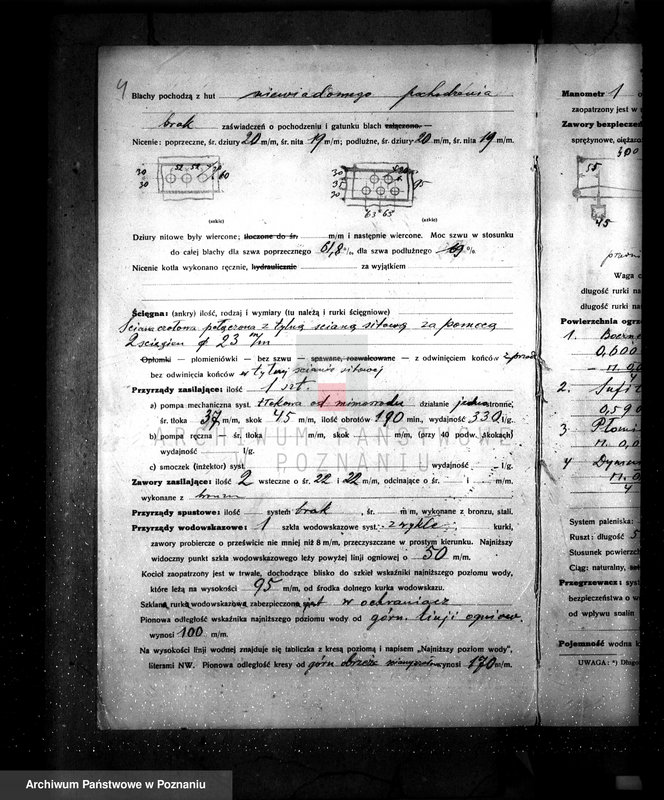 4
Blachy pochodzą z hut niewiadomego pochodzenia
brak zaświadczeń o pochodzeniu i gatunku blach załączono.
Nicenie: poprzeczne, śr. dziury 20 m/m, śr. nita 19 m/m; podłużne, śr. dziury 20 m/m, śr. nita 19 m/m.
30
30
52 52
60
30
35
30
95
63 65
(szkic)
(szkic)
Dziury nitowe były wiercone; tłoczone do śr. m/m i następnie wiercone. Moc szwu w stosunku
do całej blachy dla szwa poprzecznego 61,8 %, dla szwa podłużnego 69 %.
Nicenie kotła wykonano ręcznie, hydraulicznie za wyjątkiem
Ścięgna: (ankry) ilość, rodzaj i wymiary (tu należą i rurki ścięgniowe)
Ściana czołowa połączona z tylną ścianą sitową za pomocą
2 ściągien φ 23 m/m
Opłomki — płomieniówki — bez szwu — spawane, rozwalcowane — z odwinięciem końców z przodu
bez odwinięcia końców w tylnej ścianie sitowej
Przyrządy zasilające: ilość 1 szt.
a) pompa mechaniczna syst. tłokowa od mimośrodu działanie jednostronne,
śr. tłoka 37 m/m, skok 45 m/m, ilość obrotów 190 min., wydajność 330 l/g.
b) pompa ręczna — śr. tłoka — m/m, skok — m/m, (przy 40 podw. skokach)
wydajność — l/g.
c) smoczek (inżektor) syst. wydajność — l/g.
Zawory zasilające: ilość 2 wsteczne o śr. 22 i 22 m/m, odcinające o śr. i m/m.
wykonane z bronzu
Przyrządy spustowe: ilość system brak, śr. m/m, wykonane z bronzu, stali.
Przyrządy wodowskazowe: 1 szkła wodowskazowe syst. zwykłe kurki,
zawory probiercze o prześwicie nie mniej niż 8 m/m, przeczyszczane w prostym kierunku. Najniższy
widoczny punkt szkła wodowskazowego leży powyżej linji ogniowej o 50 m/m.
Kocioł zaopatrzony jest w trwałe, dochodzące blisko do szkieł wskaźniki najniższego poziomu wody,
które leżą na wysokości 95 m/m, od środka dolnego kurka wodowskazu.
Szklana rurka wodowskazowa zabezpieczona jest w ochraniacz
Pionowa odległość wskaźnika najniższego poziomu wody od górn. linji ogniow.
wynosi 100 m/m.
Na wysokości linji wodnej znajduje się tabliczka z kresą poziomą i napisem „Najniższy poziom wody",
literami NW. Pionowa odległość kresy od górn obrzeża wynosi 170 m/m.
Manometr 1
zaopatrzony jest w
Zawory bezpieczeń
sprężynowe, ciężaro
300
55
45
Waga c
długość rurki na
długość rurki na
Powierzchnia ogrz
1. Boczne
0,600
2. Sufit
0,590
3 Płomi
4 Dymn
4
System paleniska:
Ruszt: długość 5
Stosunek powierzch
Ciąg: naturalny,
Przegrzewacz: syst
bezpieczeństwa o w
od wpływu spalin
Pojemność wodna k
UWAGA: *) Długo
ARCHIWUM PAŃSTWOWE
W POZNANIU
Archiwum Państwowe w Poznaniu